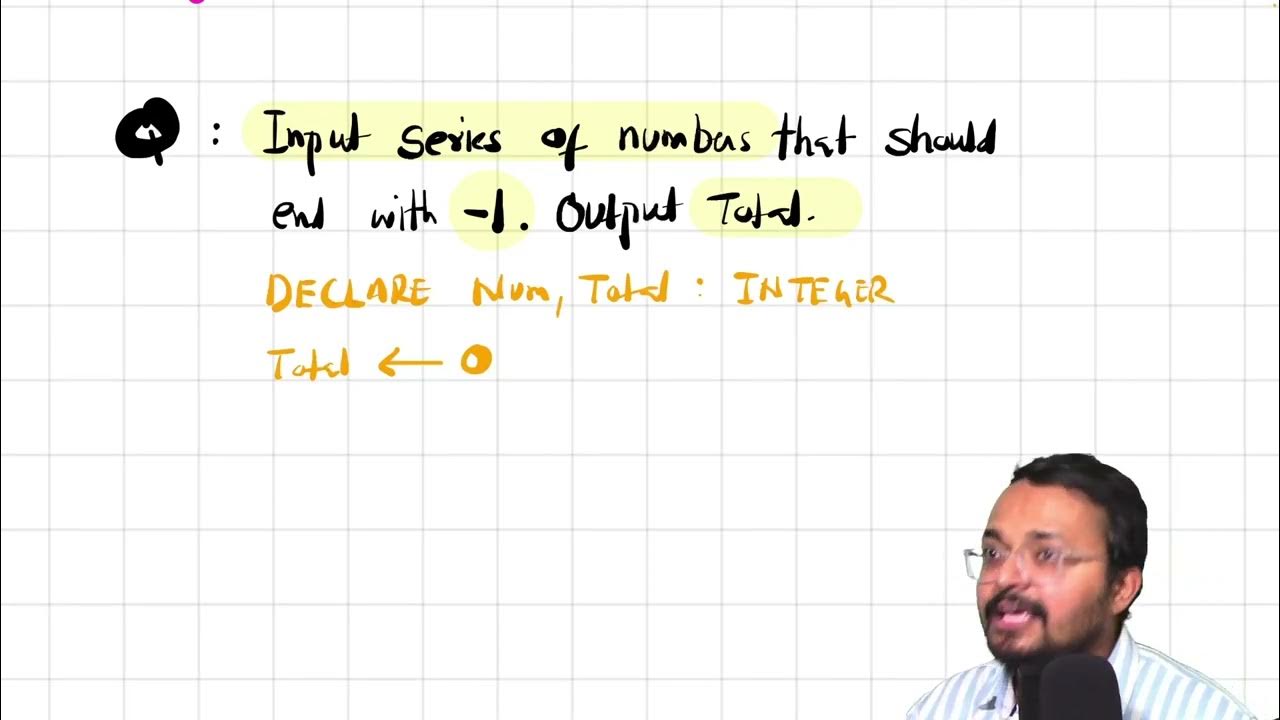 Q : Input series of numbers that should
end with -1. Output Total.
DECLARE Num, Total : INTEGER
Total ← 0